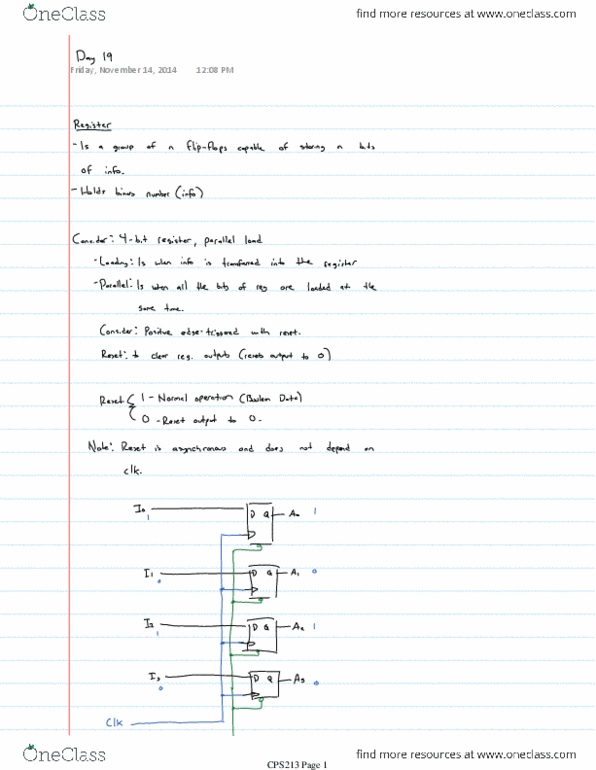 OneClass find more resources at www.oneclass.com
Day 19
Friday, November 14, 2014 12:08 PM
Register
- Is a group of n flip-flops capable of storing n bits
of info.
- Holds binary number (info)
Consider: 4-bit register, parallel load
- Loading: Is when info is transferred into the register
- Parallel: Is when all the bits of reg are loaded at the
same time.
Consider: Positive edge-triggered with reset.
Reset: to clear reg. outputs (resets output to 0)
Reset { 1 - Normal operation (Boolean Data)
0 - Reset output to 0.
Note: Reset is asynchronous and does not depend on
clk.
I₀ D Q A₀ 1
1
I₁ D Q A₁ 0
0
I₂ D Q A₂ 1
1
I₃ D Q A₃ 0
0
Clk
OneClass find more resources at www.oneclass.com
CPS213 Page 1